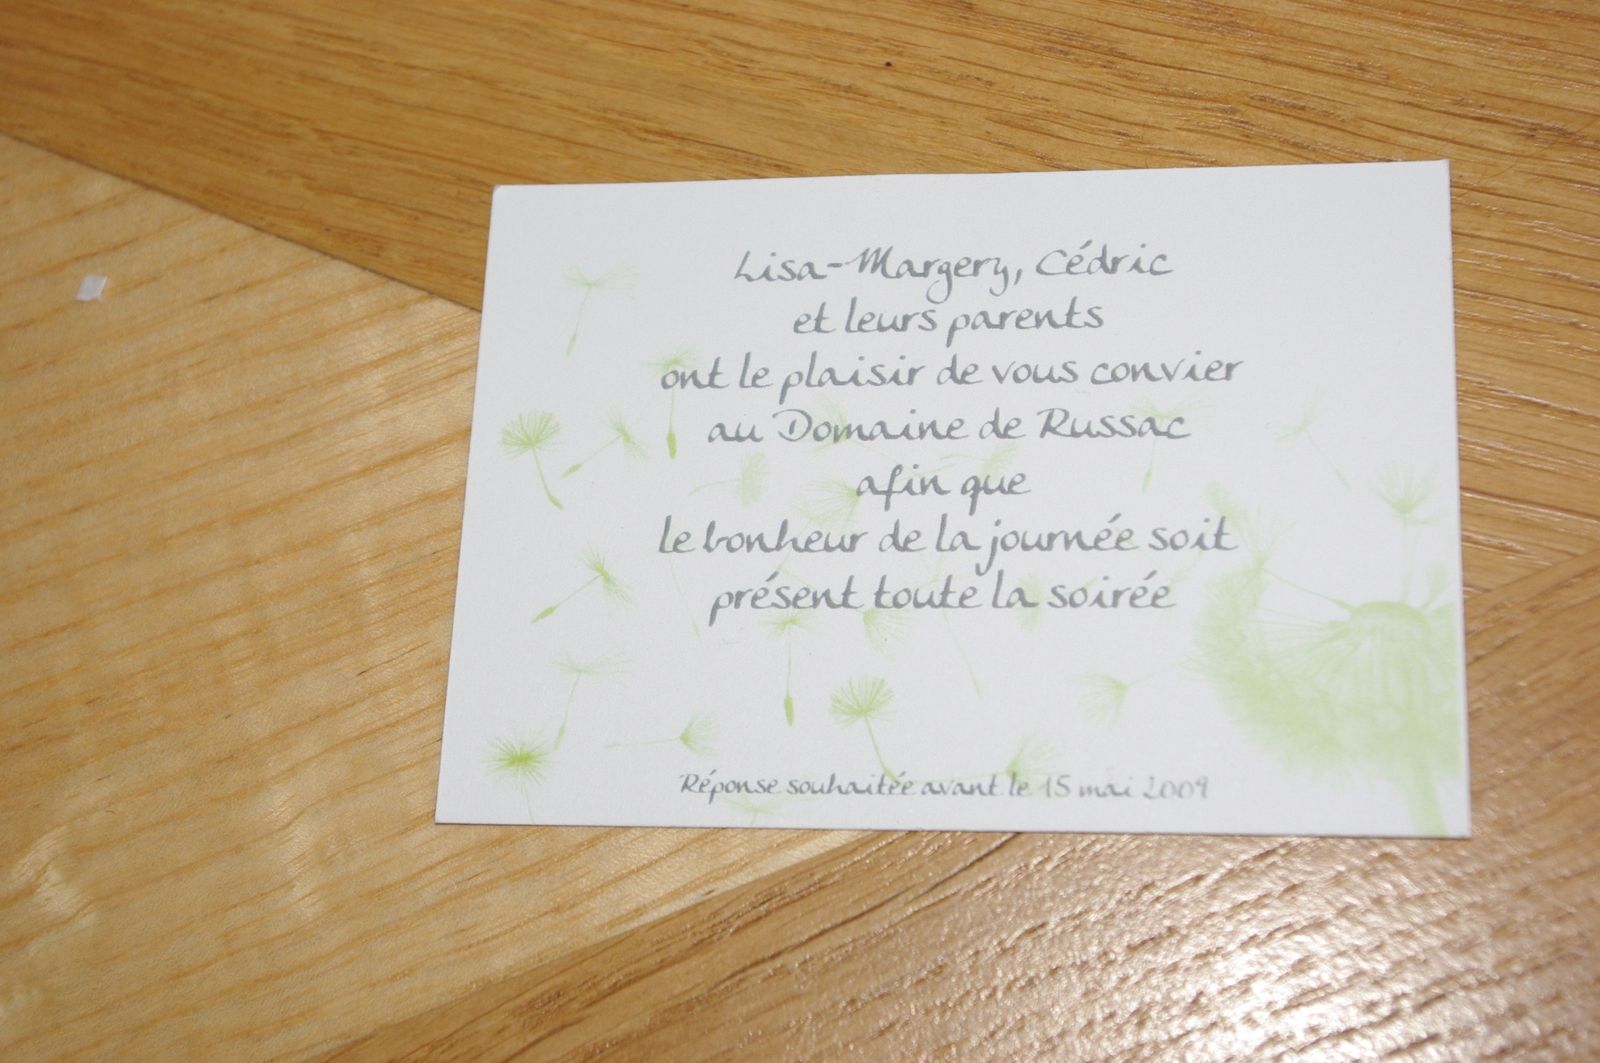 Lisa-Margery, Cédric
et leurs parents
ont le plaisir de vous convier
au Domaine de Russac
afin que
le bonheur de la journée soit
présent toute la soirée
Réponse souhaitée avant le 15 mai 2009